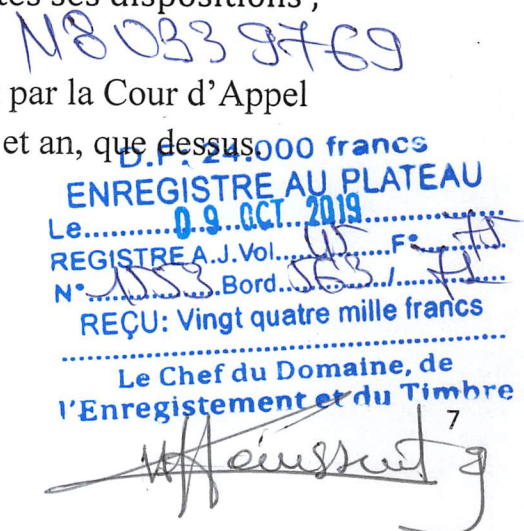 tes ses dispositions ;
N8 0339769
par la Cour d’Appel
et an, que dessus.
D.F: 24.000 francs
ENREGISTRE AU PLATEAU
Le...........0.9..OCT..2019................
REGISTRE A.J.Vol....45......F°....75....
N°..1553..Bord...563../..71...
REÇU: Vingt quatre mille francs
Le Chef du Domaine, de
l'Enregistement et du Timbre
7